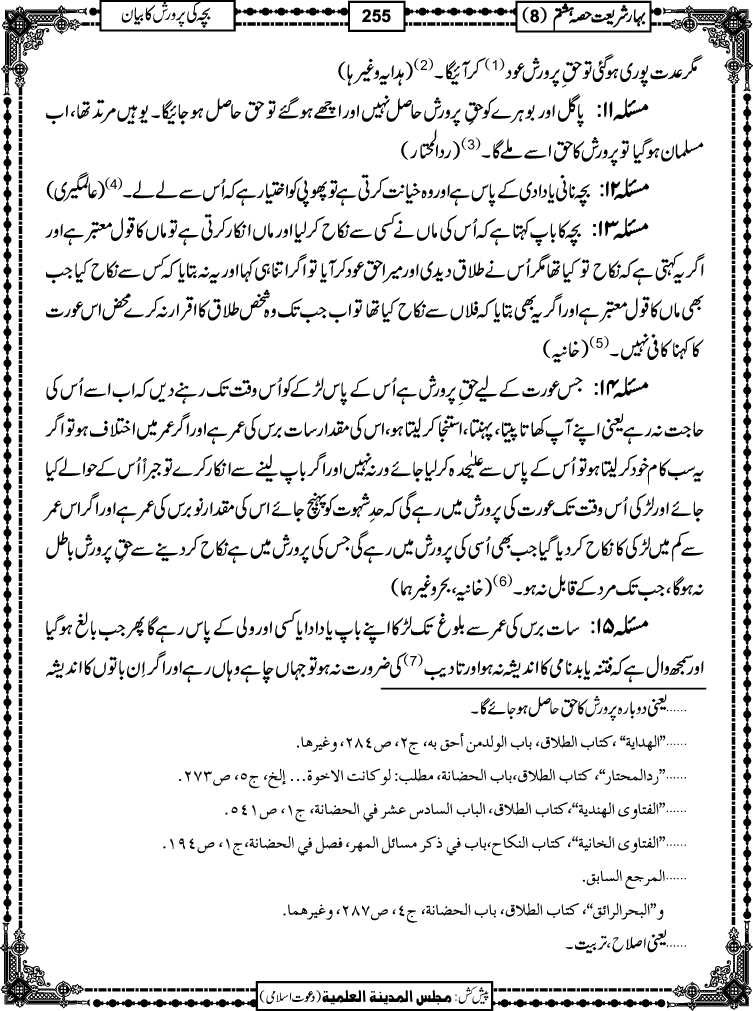 بہار شریعت حصہ ہشتم (8)
255
بچہ کی پرورش کا بیان
مگر عدت پوری ہوگئی تو حقِ پرورش عود(1) کر آئیگا۔(2) (ہدایہ وغیرہا)
مسئلہ ۱۱: پاگل اور بوہرے کو حقِ پرورش حاصل نہیں اور اچھے ہوگئے تو حق حاصل ہو جائیگا۔ یوہیں مرتد تھا، اب
مسلمان ہوگیا تو پرورش کا حق اسے ملے گا۔(3) (ردالمحتار)
مسئلہ ۱۲: بچہ نانی یا دادی کے پاس ہے اور وہ خیانت کرتی ہے تو پھوپی کو اختیار ہے کہ اُس سے لے لے۔(4) (عالمگیری)
مسئلہ ۱۳: بچہ کا باپ کہتا ہے کہ اُس کی ماں نے کسی سے نکاح کر لیا اور ماں انکار کرتی ہے تو ماں کا قول معتبر ہے اور
اگر یہ کہتی ہے کہ نکاح تو کیا تھا مگر اُس نے طلاق دیدی اور میرا حق عود کر آیا تو اگر اتنا ہی کہا اور یہ نہ بتایا کہ کس سے نکاح کیا جب
بھی ماں کا قول معتبر ہے اور اگر یہ بھی بتایا کہ فلاں سے نکاح کیا تھا تو اب جب تک وہ شخص طلاق کا اقرار نہ کرے محض اس عورت
کا کہنا کافی نہیں۔(5) (خانیہ)
مسئلہ ۱۴: جس عورت کے لیے حقِ پرورش ہے اُس کے پاس لڑکے کو اُس وقت تک رہنے دیں کہ اب اسے اُس کی
حاجت نہ رہے یعنی اپنے آپ کھاتا پیتا، پہنتا، استنجا کر لیتا ہو، اس کی مقدار سات برس کی عمر ہے اور اگر عمر میں اختلاف ہو تو اگر
یہ سب کام خود کر لیتا ہو تو اُس کے پاس سے علیٰحدہ کر لیا جائے ورنہ نہیں اور اگر باپ لینے سے انکار کرے تو جبراً اُس کے حوالے کیا
جائے اور لڑکی اُس وقت تک عورت کی پرورش میں رہے گی کہ حدِ شہوت کو پہنچ جائے اس کی مقدار نو برس کی عمر ہے اور اگر اس عمر
سے کم میں لڑکی کا نکاح کر دیا گیا جب بھی اُسی کی پرورش میں رہے گی جس کی پرورش میں ہے نکاح کر دینے سے حقِ پرورش باطل
نہ ہوگا، جب تک مرد کے قابل نہ ہو۔(6) (خانیہ، بحر وغیرہما)
مسئلہ ۱۵: سات برس کی عمر سے بلوغ تک لڑکا اپنے باپ یا دادا یا کسی اور ولی کے پاس رہے گا پھر جب بالغ ہوگیا
اور سمجھ وال ہے کہ فتنہ یا بدنامی کا اندیشہ نہ ہو اور تادیب(7) کی ضرورت نہ ہو تو جہاں چاہے وہاں رہے اور اگر اِن باتوں کا اندیشہ
......یعنی دوبارہ پرورش کا حق حاصل ہو جائے گا۔
......”الهداية“، كتاب الطلاق، باب الولدمن أحق به، ج٢، ص٢٨٤، وغيرها.
......”ردالمحتار“، كتاب الطلاق،باب الحضانة، مطلب: لو كانت الاخوة... إلخ، ج٥، ص٢٧٣.
......”الفتاوى الهندية“،كتاب الطلاق، الباب السادس عشر في الحضانة، ج١، ص٥٤١.
......”الفتاوى الخانية“، كتاب النكاح،باب في ذكر مسائل المهر، فصل في الحضانة،ج١، ص١٩٤.
......المرجع السابق.
و”البحرالرائق“، كتاب الطلاق، باب الحضانة، ج٤، ص٢٨٧، وغيرهما.
......یعنی اصلاح، تربیت۔
پیش کش: مجلس المدينة العلمية (دعوت اسلامی)